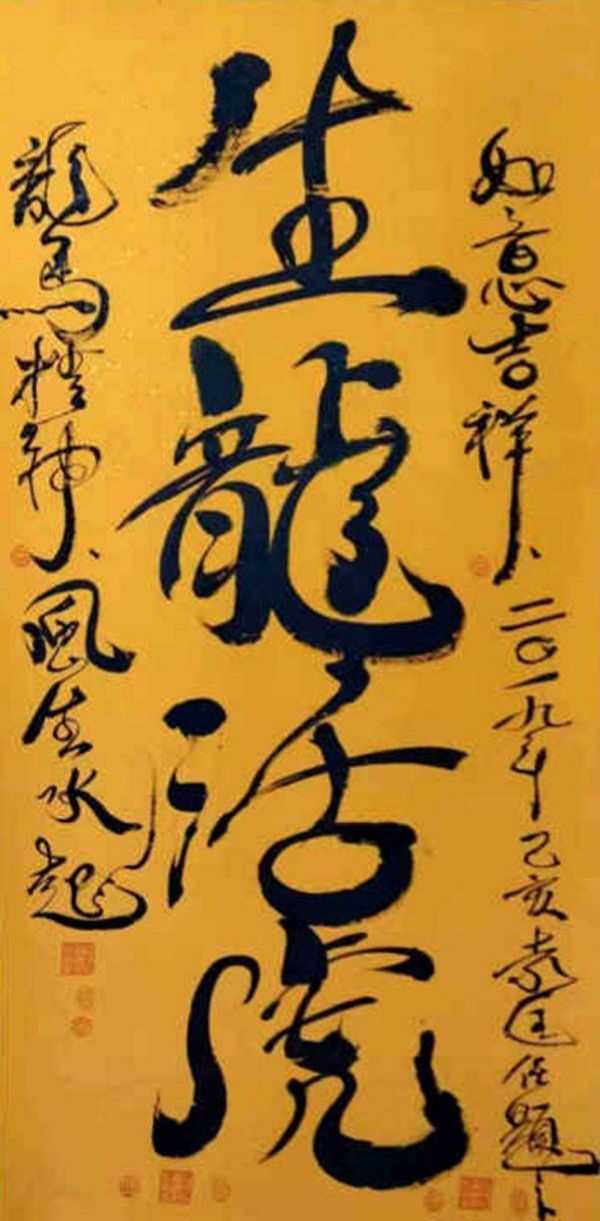 如意吉祥 二〇一九年己亥 題
生龍活虎
龍馬精神 風生水起